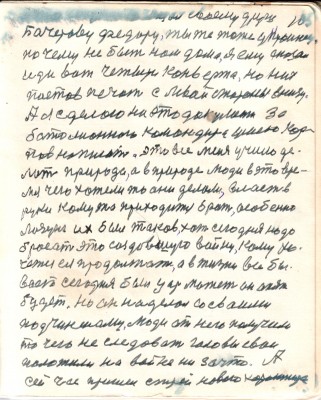 своему другу 10
Бачерову федору, ты же тоже украинец
почему не был там дома, я ему сказал
иди вот четыре конверта, но них
поставь печать с левай стороны внизу.
А я сделаю на это докумет за
батолионного командира
тов напишет. Это все меня учило де-
лать природа, а в природе люди в это вре-
мя чего хотели то они делали, власть в
руки кому то приходить брат, особенно
их был таков, хот сегодня надо
бросать это создавшую войну, кому хо-
чется продолжать, а в жизни все бы-
вает сегодня был у их может он опять
будет. Но он наделал со своими
подчинеными, люди от него получили
то чего не следовать головы свои
положили на войне ни за что. А
сей час пришли строй нового характера